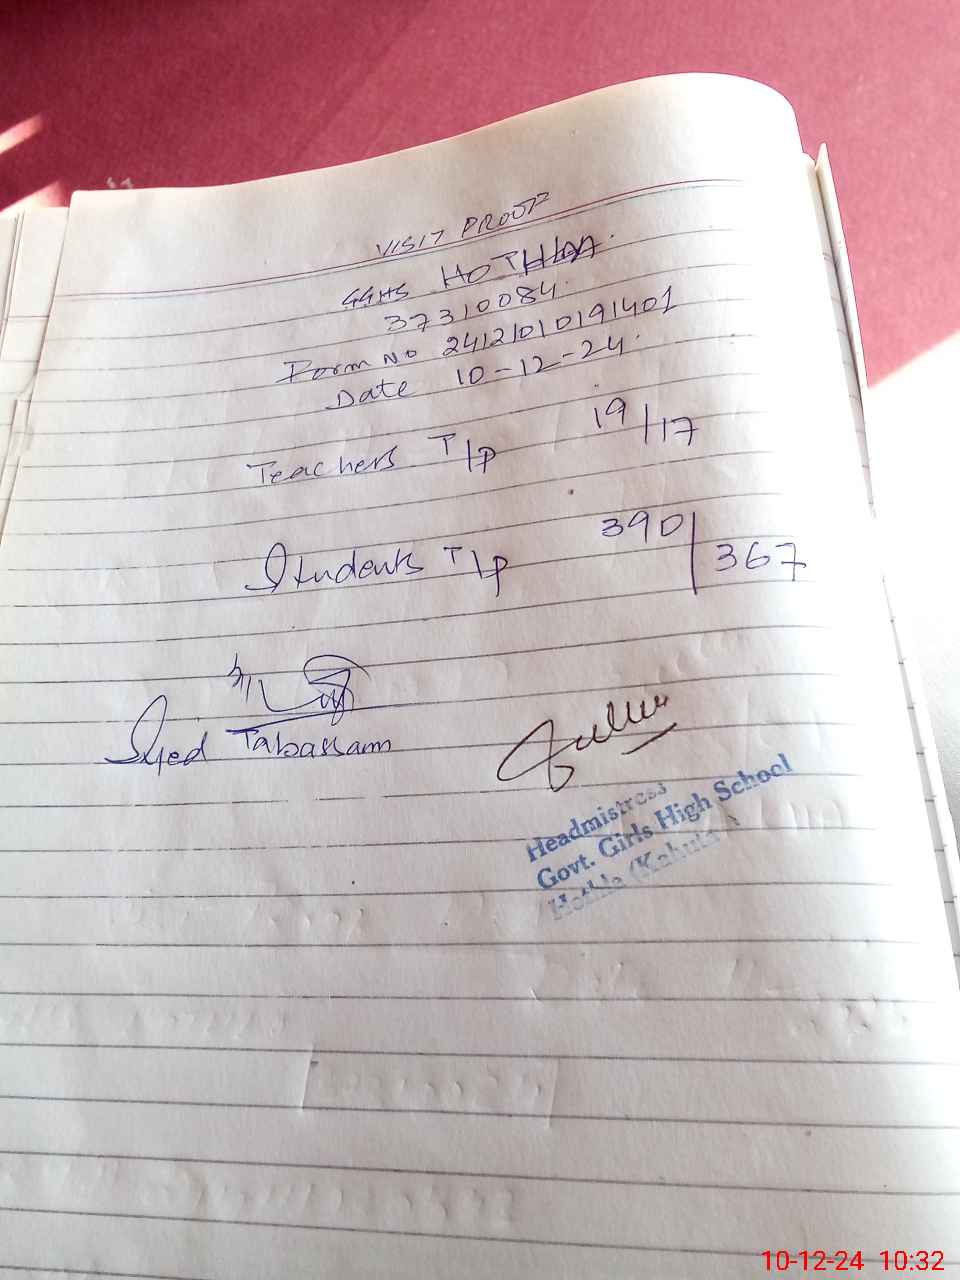 VISIT PROOF
GGHS HOTHLAA
37310084.
Form No 24121010191401
Date 10-12-24.
Teachers T/P 19/17
Students T/P 390/367
Syed Tabassam
Headmistress
Govt. Girls High School
Hothla (Kahuta)
10-12-24 10:32